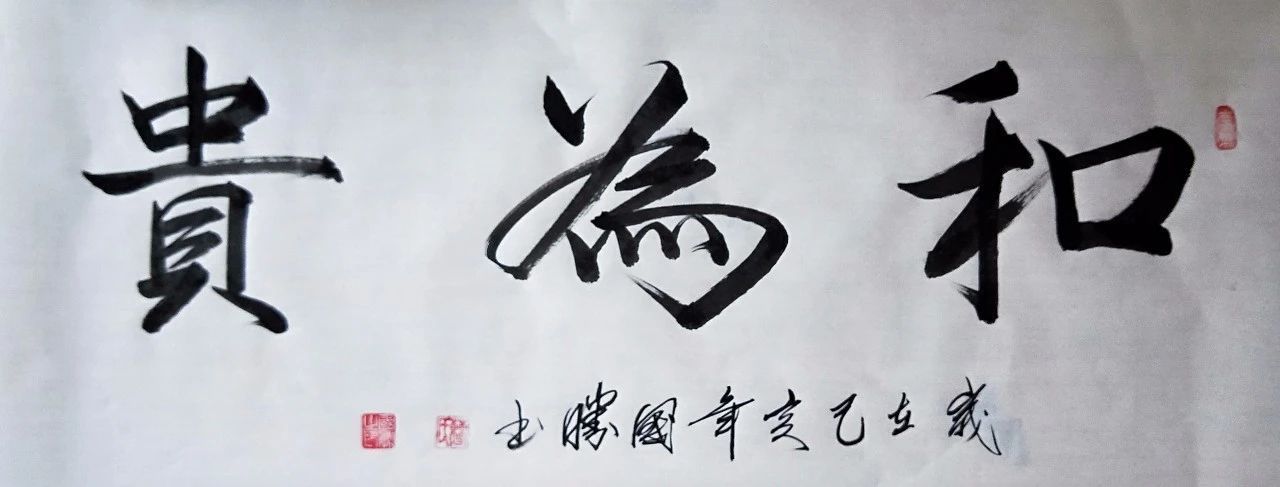 和為貴
歲在己亥年國勝书